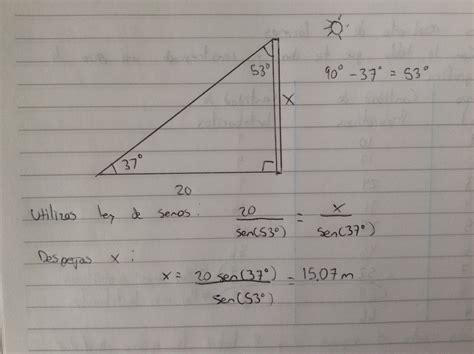 53°
90° - 37° = 53°
x
37°
20
Utilizas ley de senos: 20/sen(53°) = x/sen(37°)
Despejas x:
x = 20 sen(37°)/sen(53°) = 15.07 m